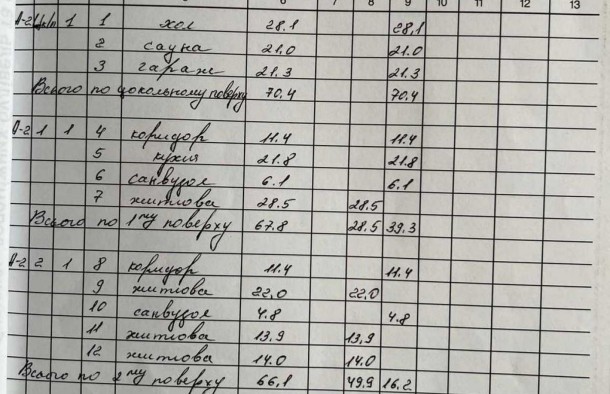 6 7 8 9 10 11 12 13
А-2 Цок/п 1 1 хол 28.1 28,1
2 сауна 21.0 21.0
3 гараж 21.3 21.3
Всього по цокольному поверху 70.4 70.4
А-2 1 1 4 коридор 11.4 11.4
5 кухня 21.8 21.8
6 санвузол 6.1 6.1
7 житлова 28.5 28.5
Всього по 1му поверху 67.8 28.5 39.3
А-2 2 1 8 коридор 11.4 11.4
9 житлова 22.0 22.0
10 санвузол 4.8 4.8
11 житлова 13.9 13,9
12 житлова 14.0 14.0
Всього по 2му поверху 66,1 49.9 16.2